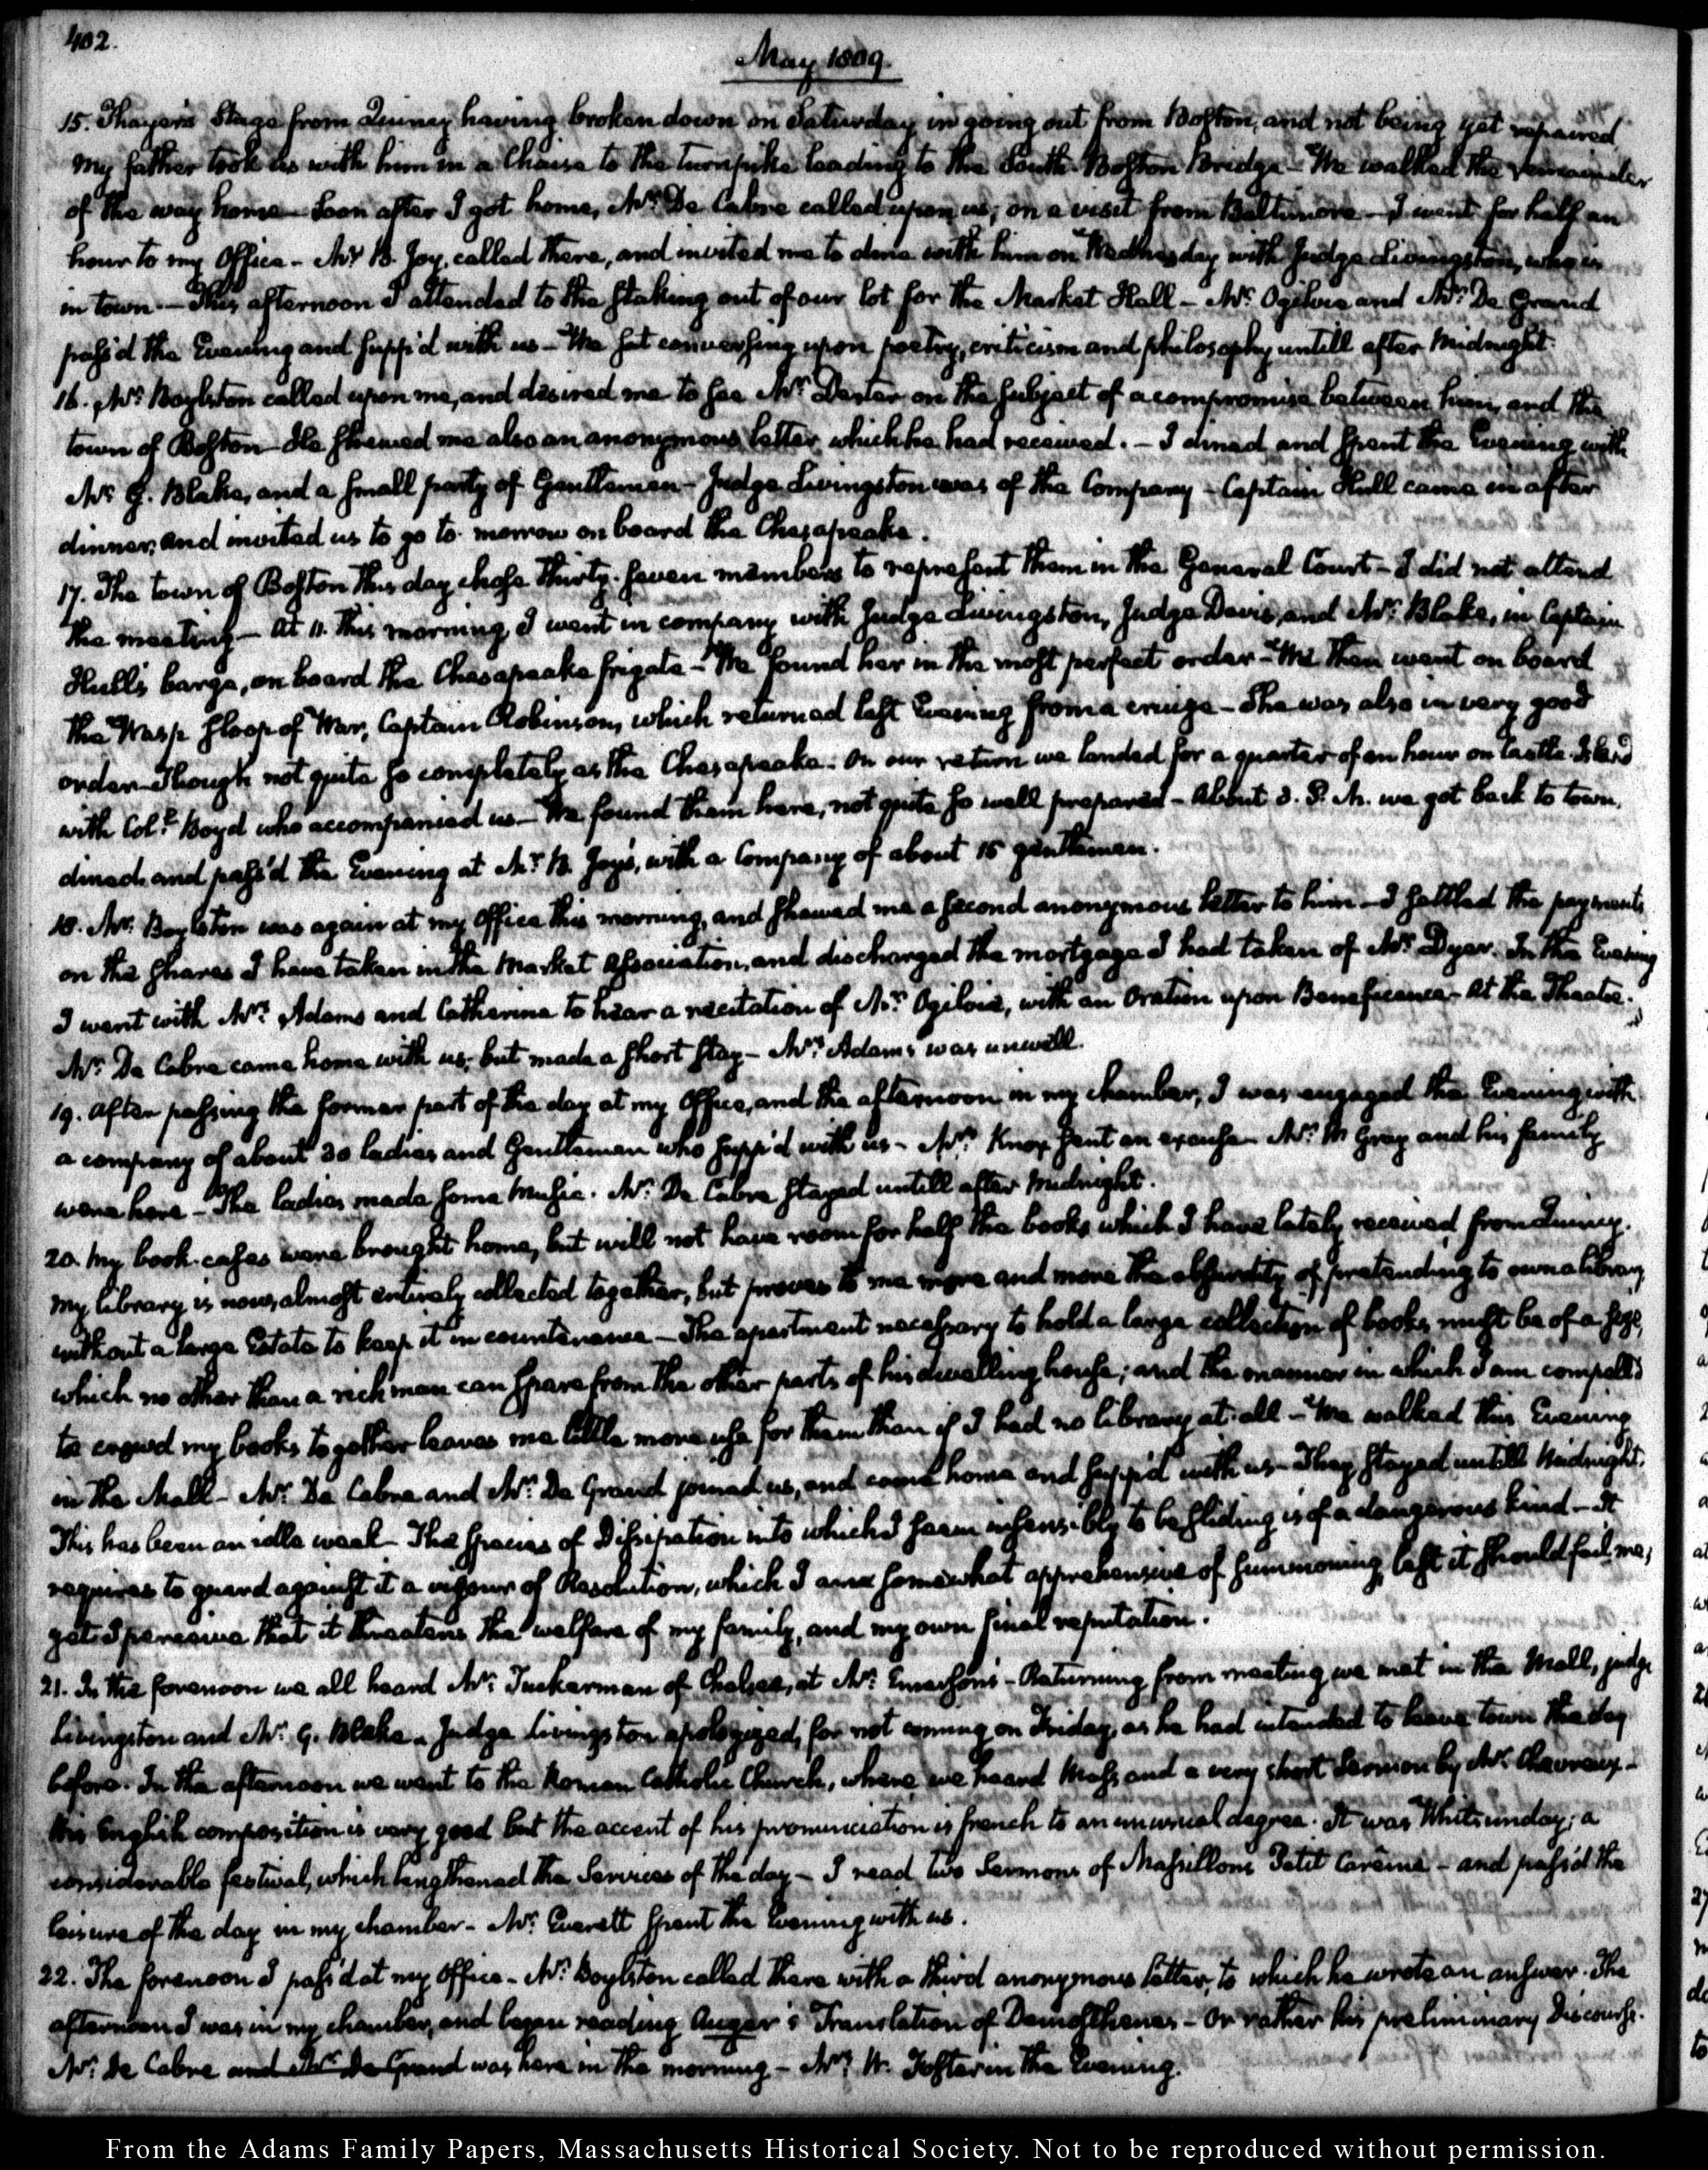 402.
May 1809.
15. Thayer's Stage from Quincy having broken down on Saturday in going out from Boston, and not being yet repaired
my father took us with him in a Chaise to the turnpike leading to the South-Boston Bridge — We walked the remainder
of the way home — Soon after I got home, Mr. De Cabre called upon us, on a visit from Baltimore — I went for half an
hour to my Office — Mr. B. Joy, called there, and invited me to dine with him on Wednesday with Judge Livingston, who is
in town. — This afternoon I attended to the staking out of our lot for the Market Hall — Mr. Ogilvie and Mr. De Grand
pass'd the Evening and supp'd with us — We sat conversing upon poetry, criticism and philosophy untill after Midnight.
16. Mr. Boylston called upon me, and desired me to see Mr. Dexter on the subject of a compromise between him, and the
town of Boston — He shewed me also an anonymous letter which he had received. — I dined and spent the Evening with
Mr. G. Blake, and a small party of Gentlemen — Judge Livingston was of the Company — Captain Hull came in after
dinner, and invited us to go to-morrow on board the Chesapeake.
17. The town of Boston this day chose thirty-seven members to represent them in the General Court — I did not attend
the meeting — At 11. this morning I went in company with Judge Livingston, Judge Davis, and Mr. Blake, in Captain
Hull's barge, on board the Chesapeake frigate — We found her in the most perfect order — We then went on board
the Wasp sloop of War, Captain Robinson, which returned last Evening from a cruize — She was also in very good
order though not quite so completely as the Chesapeake. On our return we landed for a quarter of an hour on Castle-Island
with Coll. Boyd who accompanied us — We found them here, not quite so well prepared — About 3. P. M. we got back to town,
dined and pass'd the Evening at Mr. B. Joy's, with a Company of about 15 gentlemen.
18. Mr. Boylston was again at my Office this morning, and shewed me a second anonymous letter to him — I settled the payments
on the shares I have taken in the Market Association, and discharged the mortgage I had taken of Mr. Dyer. In the Evening
I went with Mrs. Adams and Catherine to hear a recitation of Mr. Ogilvie, with an Oration upon Beneficence — At the Theatre.
Mr. De Cabre came home with us; but made a short stay — Mrs. Adams was unwell.
19. After passing the former part of the day at my Office, and the afternoon in my chamber, I was engaged the Evening with
a company of about 30 ladies and Gentlemen who supp'd with us — Mrs. Knox sent an excuse — Mr. W Gray and his family
were here — The ladies made some Music. Mr. De Cabre stayed untill after Midnight.
20. My book-cases were brought home, but will not have room for half the books which I have lately received from Quincy.
My library is now, almost entirely collected together, but proves to me more and more the absurdity of pretending to own a library
without a large Estate to keep it in countenance — The apartment necessary to hold a large collection of books must be of a size,
which no other than a rich man can spare from the other parts of his dwelling house; and the manner in which I am compell'd
to crowd my books together leaves me little more use for them than if I had no library at all — We walked this Evening
in the Mall — Mr. De Cabre and Mr. De Grand joined us, and came home and supp'd with us — They stayed untill Midnight.
This has been an idle week — The species of Dissipation into which I seem insensibly to be sliding is of a dangerous kind — It
requires to guard against it a vigour of Resolution, which I am somewhat apprehensive of summoning, lest it should fail me,
yet I perceive that it threatens the welfare of my family, and my own final reputation.
21. In the forenoon we all heard Mr. Tuckerman of Chelsea, at Mr. Emerson's — Returning from meeting we met in the Mall, judge
Livingston and Mr. G. Blake. Judge Livingston apologized, for not coming on Friday, as he had intended to leave town the day
before. In the afternoon we went to the Roman Catholic Church, where we heard Mass and a very short Sermon by Mr. Cheverux —
his English composition is very good but the accent of his pronunciation is french to an unusual degree. It was Whitsunday; a
considerable festival, which lengthened the Services of the day — I read two Sermons of Massillons Petit Carême — and pass'd the
leisure of the day in my chamber — Mr. Everett spent the Evening with us.
22. The forenoon I pass'd at my Office — Mr. Boylston called there with a third anonymous letter, to which he wrote an answer. The
afternoon I was in my chamber, and began reading Auger's Translation of Demosthenes — Or rather his preliminary Discourse.
Mr. De Cabre and Mr. De Grand was here in the morning — Mr. W. Foster in the Evening.
From the Adams Family Papers, Massachusetts Historical Society. Not to be reproduced without permission.